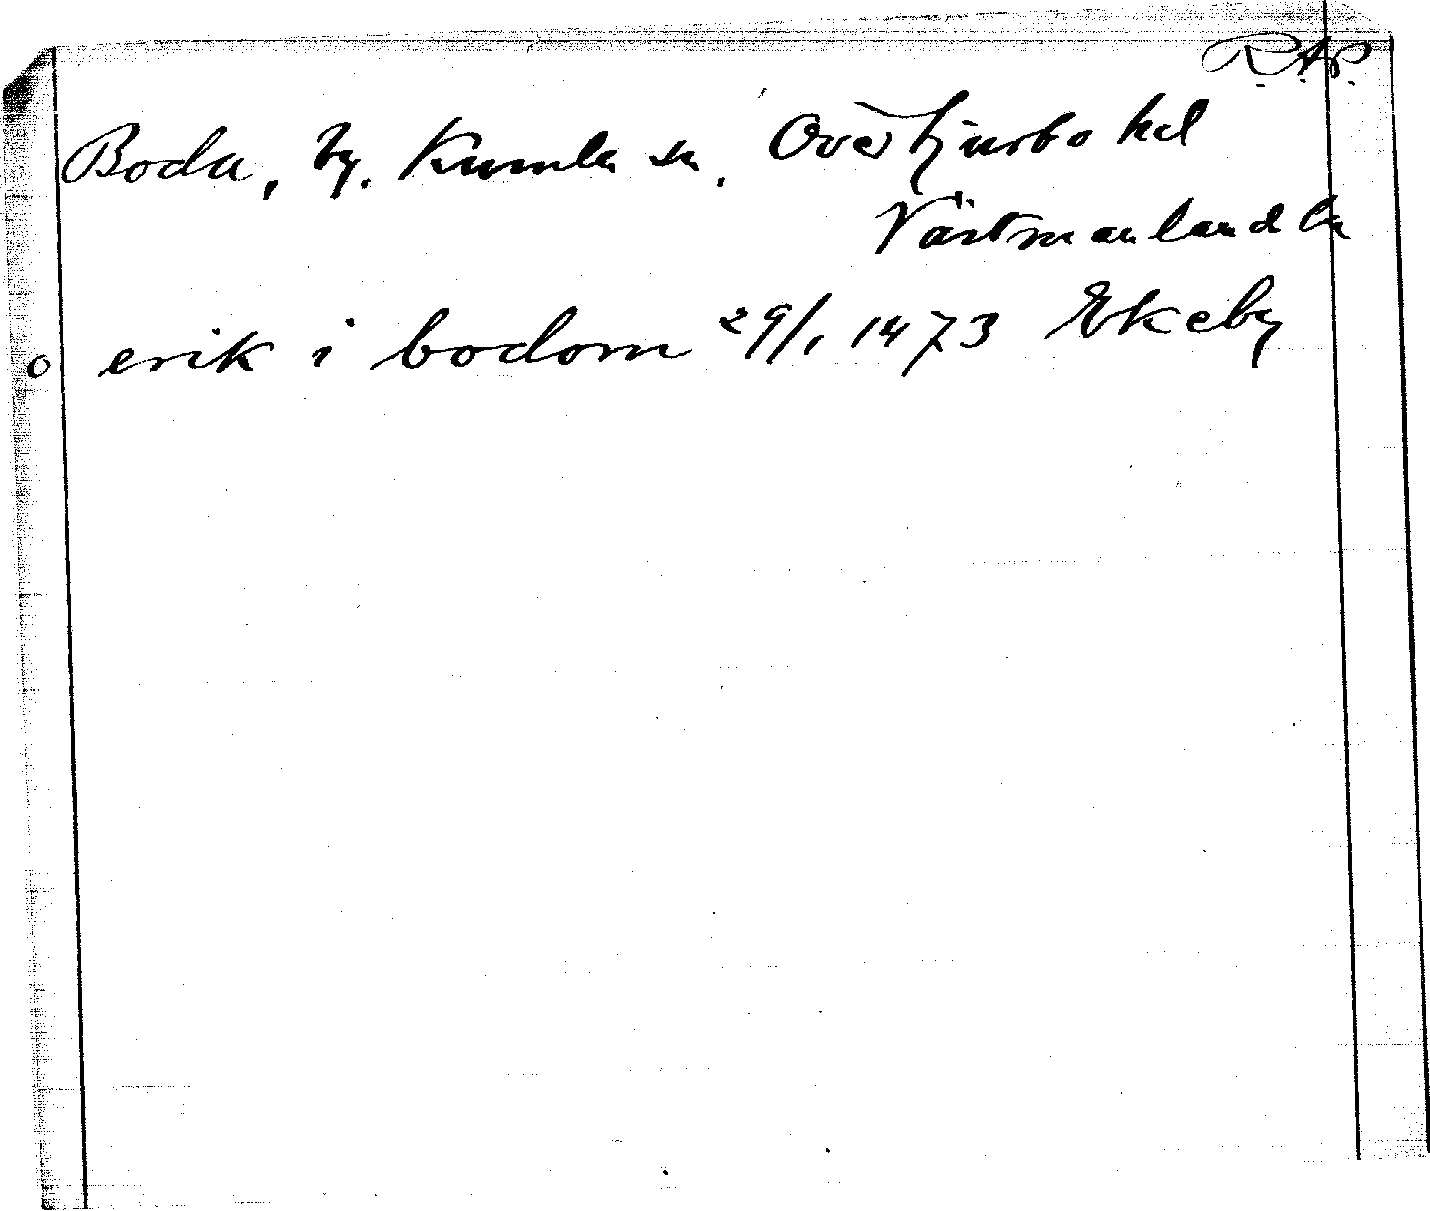 R.A.P.
Boda, by. Kumla sn, Övertjurbo hd
Västmanland län
o erik i bodom 29/1 1473 Ekeby